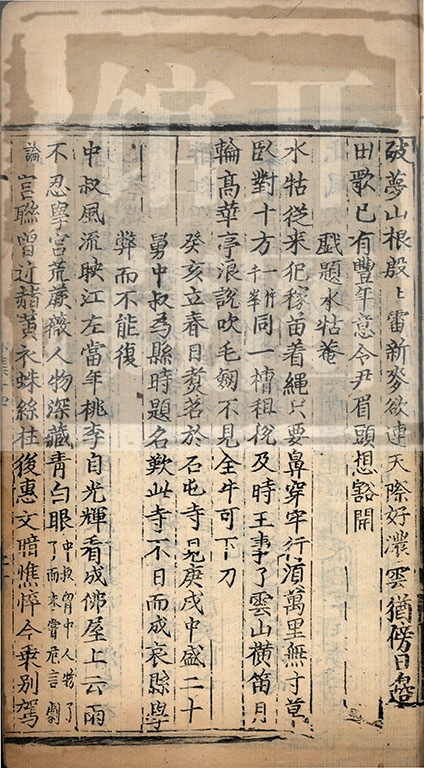 破夢山根殷〻雷新麥欲連天際好濃雲猶傍日邉
田歌已有豐年意令尹眉頭想豁開
戯題水牯菴
水牯從来犯稼苗着繩只要鼻穿牢行湏萬里無寸草
臥對十方同一槽租税及時王事了雲山横笛月
輪高華亭浪說吹毛劒不見全牛可下刀
癸亥立春日煑茗於石屯寺見庚戌中盛二十
舅中叔爲縣時題名歎此寺不日而成哀縣學
弊而不能復
中叔風流映江左當年桃李自光輝看成佛屋上云雨
不忍學宮荒蕨薇人物深藏青白眼中叔胷中人物了了而未嘗危言劇
論官聯曽近赭黄衣蛛絲柱後惠文暗憔悴今乗别駕